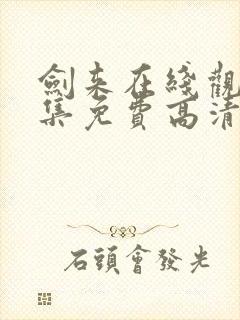 劍来在綫觀
集免費高清
石頭會發光